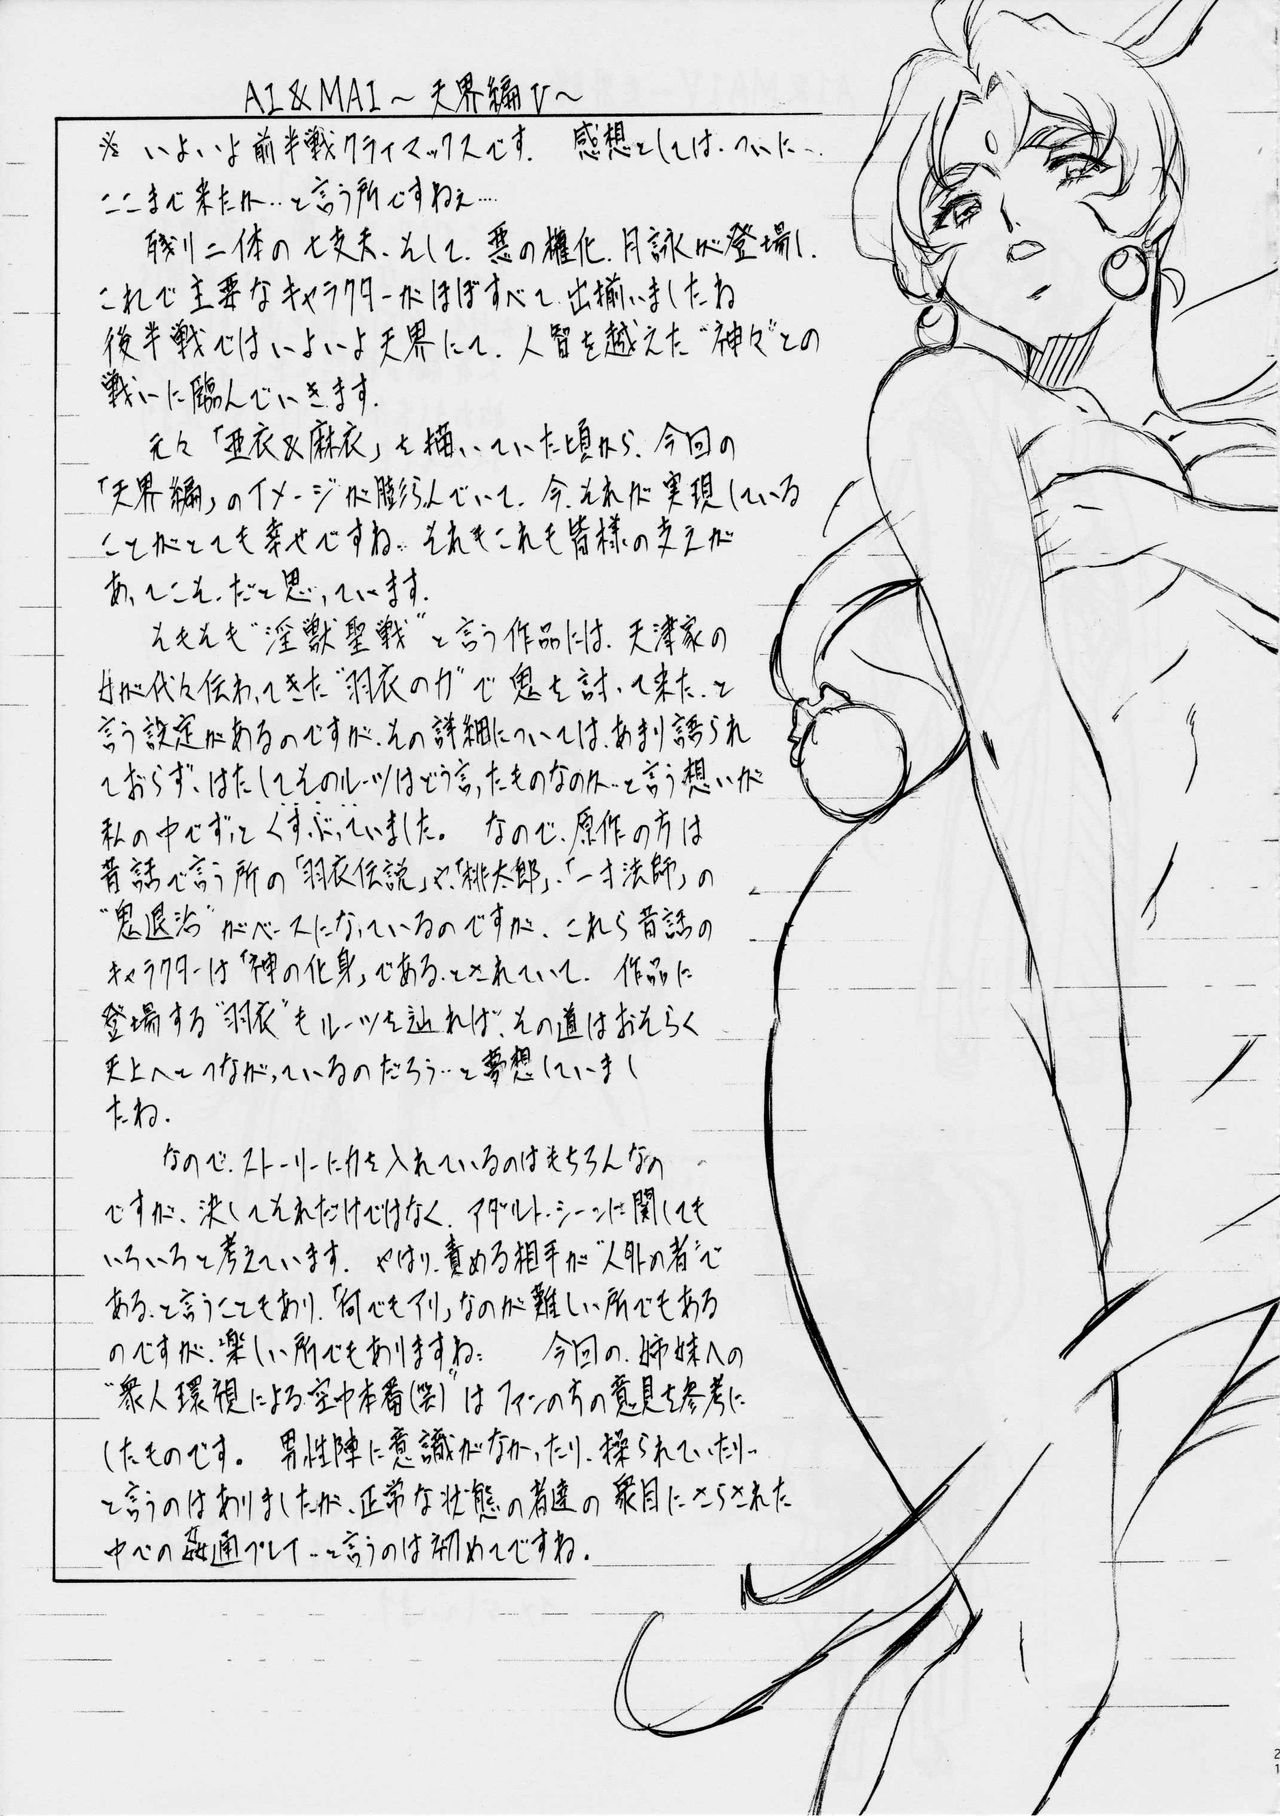 AI&MAI～天界編Ⅴ～
※ いよいよ前半戦クライマックスです. 感想としては、ついに‥
ここまで来たか‥と言う所ですねぇ‥‥
残り二体の七支天、そして、悪の権化、月詠が登場し、
これで主要なキャラクターがほぼすべて出揃いましたね
後半戦ではいよいよ天界にて、人智を越えた"神々"との
戦いに臨んでいきます.
元々「亜衣&麻衣」を描いていた頃から、今回の
「天界編」のイメージが膨らんでいて、今、それが実現している
ことがとても幸せですね‥それもこれも皆様の支えが
あってこそ、だと思っています.
そもそも"淫獣聖戦"と言う作品には、天津家の
女が代々伝わってきた"羽衣の力"で鬼を討って来た、と
言う設定があるのですが、その詳細については、あまり語られ
ておらず、はたしてそのルーツはどう言ったものなのか‥と言う想いが
私の中でずっとくすぶっていました。 なので、原作の方は
昔話で言う所の「羽衣伝説」や、「桃太郎」、「一寸法師」の
"鬼退治"がベースになっているのですが、これら昔話の
キャラクターは「神の化身」である、とされていて、作品に
登場する"羽衣"もルーツを辿れば、その道はおそらく
天上へとつながっているのだろう‥と夢想していまし
たね.
なので、ストーリーに力を入れているのはもちろんなの
ですが、決してそれだけではなく、アダルト・シーンに関しても
いろいろと考えています. やはり、責める相手が"人外の者"で
ある、と言うこともあり、「何でもアリ」なのが難しい所でもある
のですが、楽しい所でもありますね‥ 今回の、姉妹への
"衆人環視による空中本番(笑)"はファンの方の意見を参考に
したものです。 男性陣に意識がなかったり、操られていたり‥
と言うのはありましたが、正常な状態の者達の衆目にさらされた
中での姦通プレイ‥と言うのは初めてですね.
21